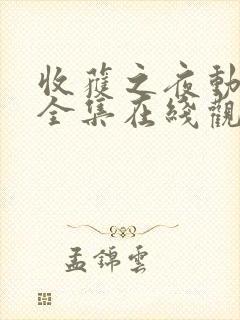 收穫之夜動
全集在綫觀
孟錦雲